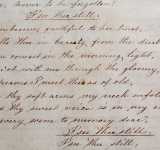 never to be forgotten?
I see thee still.
faithful to her trust,
thee in beauty, from the dust
in the morning light,
with me through the gloomy
dreams I meet thee as of old,
thy soft arms my neck enfold
thy sweet voice is in my ea
every scene to memory dear,
I see thee still.
I see thee still.